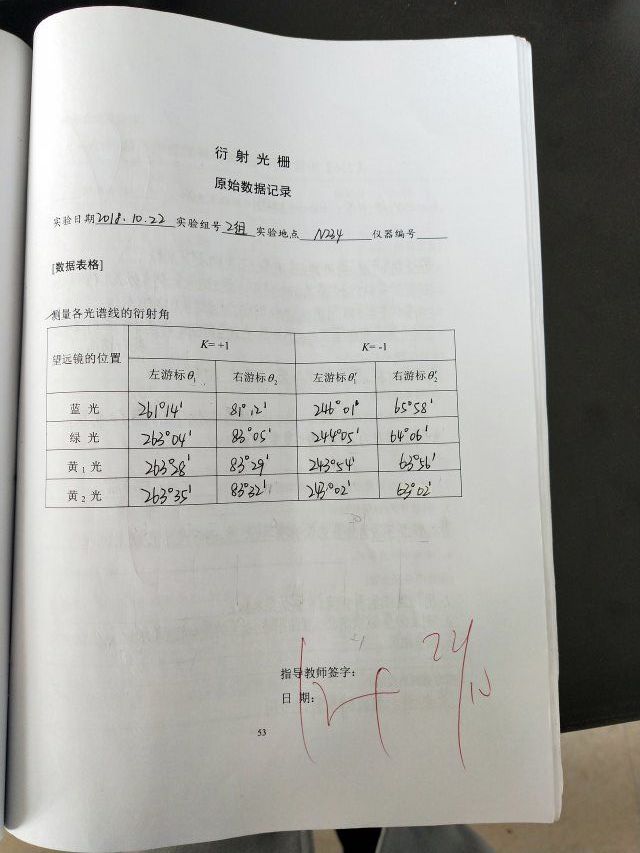 衍射光栅
原始数据记录
实验日期2018.10.22 实验组号2组 实验地点N234 仪器编号
[数据表格]
测量各光谱线的衍射角
望远镜的位置 K= +1 K= -1
左游标θ₁ 右游标θ₂ 左游标θ₁′ 右游标θ₂′
蓝光 261°14′ 81°12′ 246°01′ 65°58′
绿光 263°04′ 83°05′ 244°05′ 64°06′
黄₁光 263°28′ 83°29′ 243°54′ 63°56′
黄₂光 263°35′ 83°32′ 243°02′ 63°02′
指导教师签字:
日期:
53